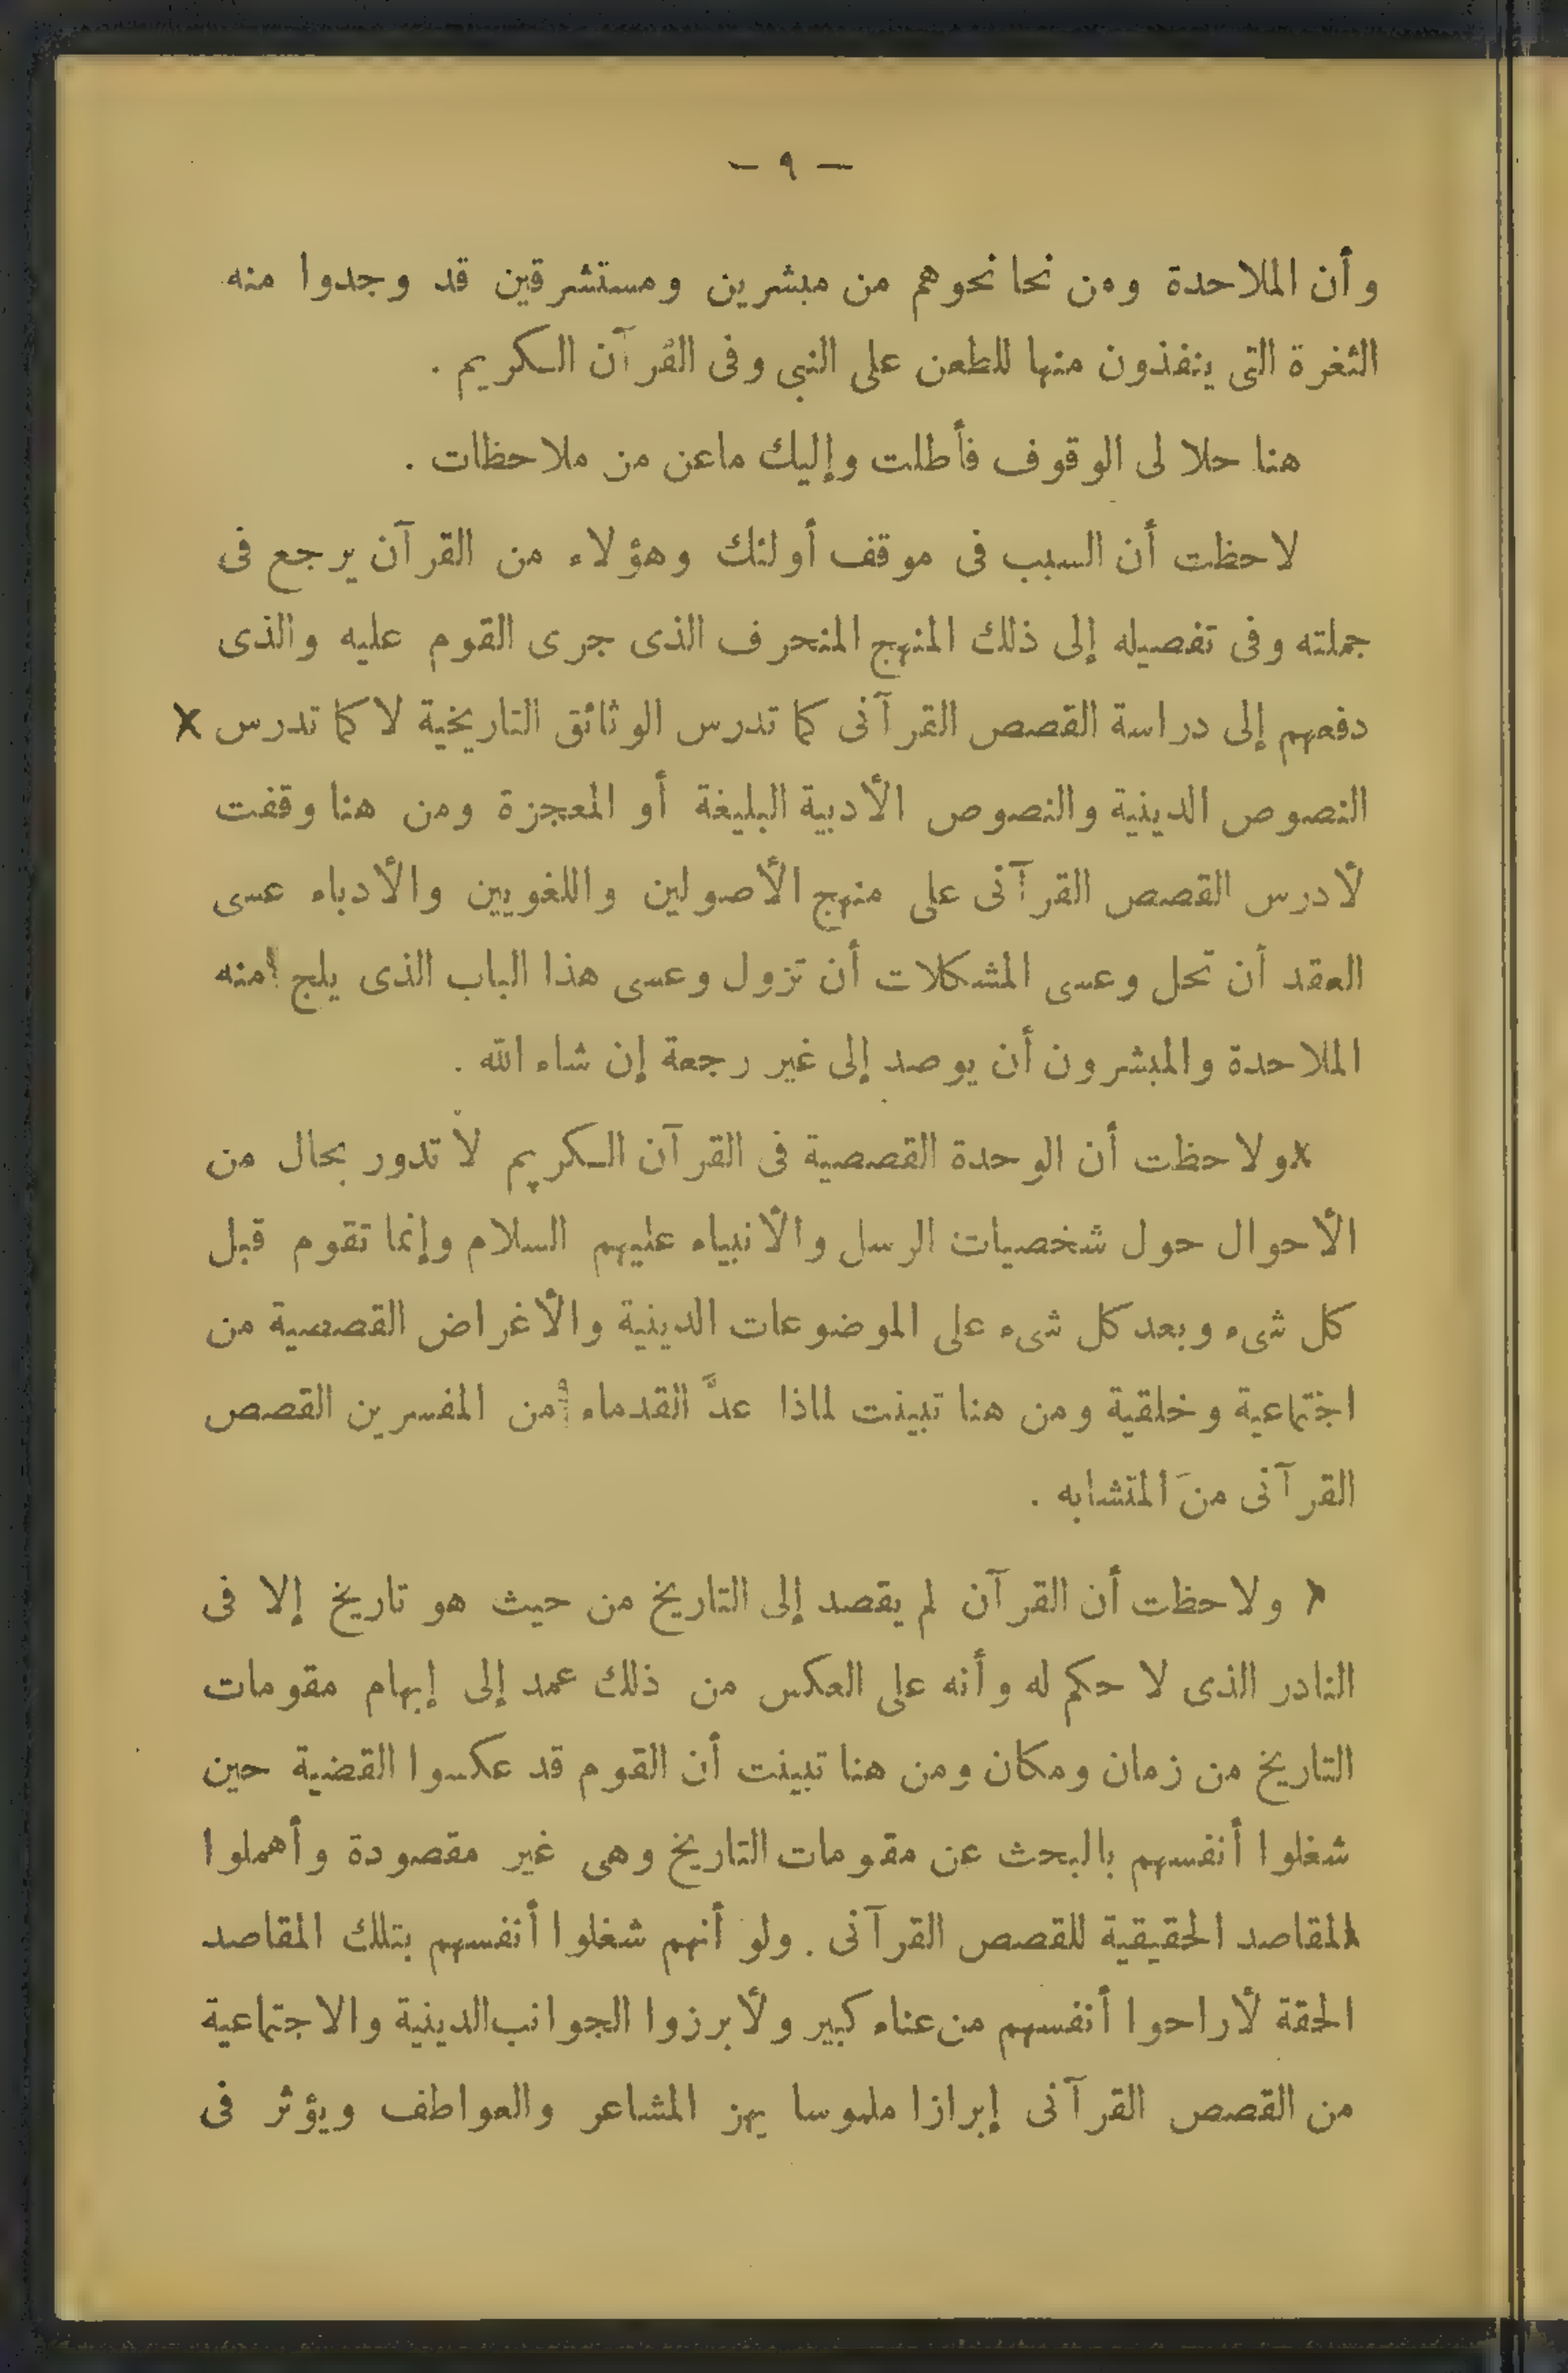 — ٩ —
وأن الملاحدة ومن نحا نحوهم من مبشرين ومستشرقين قد وجدوا منه
الثغرة التى ينفذون منها للطعن على النبى وفى القرآن الكريم .
هنا حلا لى الوقوف فأطلت وإليك ماعن من ملاحظات .
لاحظت أن السبب فى موقف أولئك وهؤلاء من القرآن يرجع فى
جملته وفى تفصيله إلى ذلك المنهج المنحرف الذى جرى القوم عليه والذى
دفعهم إلى دراسة القصص القرآنى كما تدرس الوثائق التاريخية لا كما تدرس x
النصوص الدينية والنصوص الأدبية البليغة أو المعجزة ومن هنا وقفت
لأدرس القصص القرآنى على منهج الأصولين واللغويين والأدباء عسى
العقد أن تحل وعسى المشكلات أن تزول وعسى هذا الباب الذى يلج منه
الملاحدة والمبشرون أن يوصد إلى غير رجعة إن شاء الله .
x ولاحظت أن الوحدة القصصية فى القرآن الكريم لا تدور بحال من
الأحوال حول شخصيات الرسل والأنبياء عليهم السلام وإنما تقوم قبل
كل شىء وبعد كل شىء على الموضوعات الدينية والأغراض القصصية من
اجتماعية وخلقية ومن هنا تبينت لماذا عدَّ القدماء من المفسرين القصص
القرآنى من المتشابه .
x ولاحظت أن القرآن لم يقصد إلى التاريخ من حيث هو تاريخ إلا فى
النادر الذى لا حكم له وأنه على العكس من ذلك عمد إلى إبهام مقومات
التاريخ من زمان ومكان ومن هنا تبينت أن القوم قد عكسوا القضية حين
شغلوا أنفسهم بالبحث عن مقومات التاريخ وهى غير مقصودة وأهملوا
المقاصد الحقيقية للقصص القرآنى . ولو أنهم شغلوا أنفسهم بتلك المقاصد
الحقة لأراحوا أنفسهم من عناء كبير ولأبرزوا الجوانب الدينية والاجتماعية
من القصص القرآنى إبرازا ملموسا يهز المشاعر والعواطف ويؤثر فى